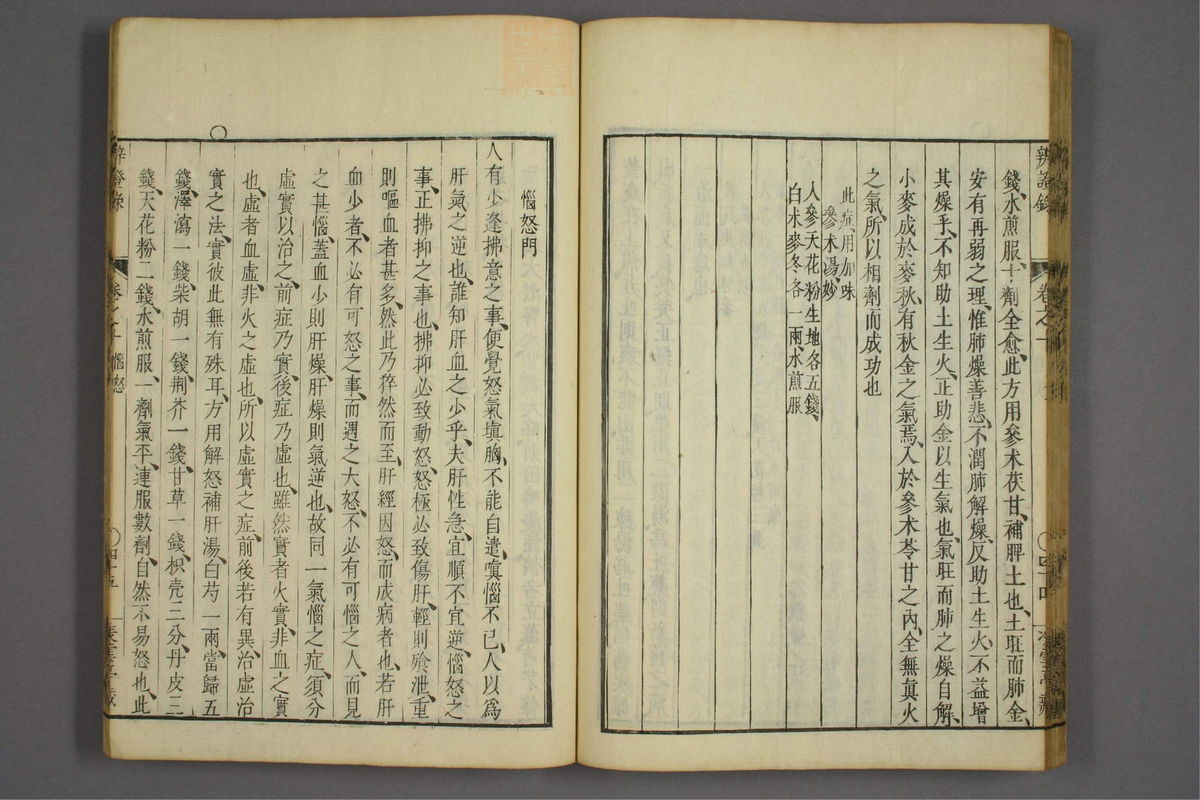 錢水煎服十劑全愈此方用參朮茯甘補脾土也土旺而肺金
安有再弱之理惟肺燥善悲不潤肺解燥反助土生火不益增
其燥乎不知助土生火正助金以生氣也氣旺而肺之燥自解
小麥成於麥秋有秋金之氣焉入於參朮苓甘之內全無真火
之氣所以相劑而成功也
此症用加味
參朮湯妙
人參天花粉生地各五錢
白朮麥冬各一兩水煎服
惱怒門
人有少逢拂意之事便覺怒氣塡胸不能自遣嗔惱不已人以爲
肝氣之逆也誰知肝血之少乎夫肝性急宜順不宜逆惱怒之
事正拂抑之事也拂抑必致動怒怒極必致傷肝輕則飧泄重
則嘔血者甚多然此乃猝然而至肝經因怒而成病者也若肝
血少者不必有可怒之事而遇之大怒不必有可惱之人而見
之甚惱蓋血少則肝燥肝燥則氣逆也故同一氣惱之症須分
虛實以治之前症乃實後症乃虛也雖然實者火實非血之實
也虛者血虛非火之虛也所以虛實之症前後若有異治虛治
實之法實彼此無有殊耳方用解怒補肝湯白芍一兩當歸五
錢澤瀉一錢柴胡一錢荆芥一錢甘草一錢枳壳三分丹皮三
錢天花粉二錢水煎服一劑氣平連服數劑自然不易怒也此
卷之十 惱怒